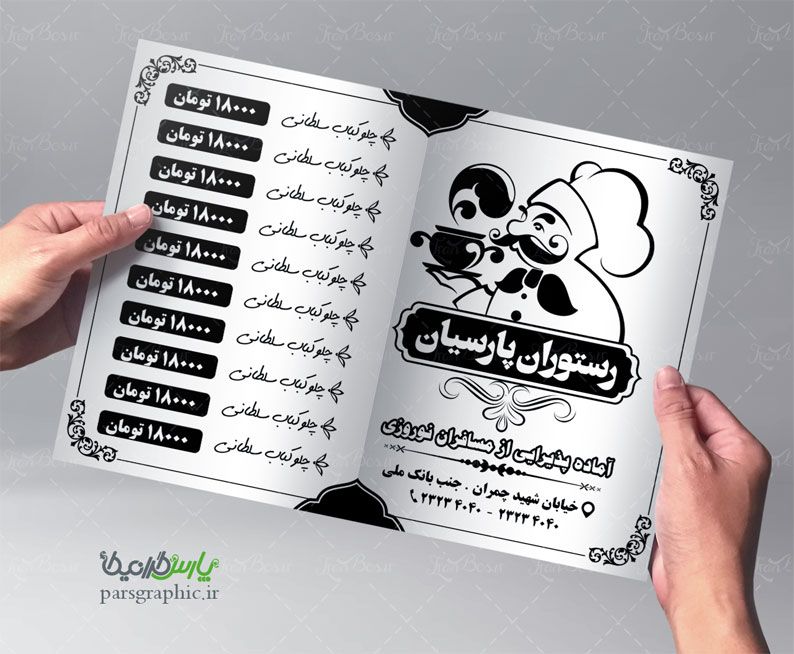 چلوکباب سلطانی ۱۸۰۰۰ تومان
چلوکباب سلطانی ۱۸۰۰۰ تومان
چلوکباب سلطانی ۱۸۰۰۰ تومان
چلوکباب سلطانی ۱۸۰۰۰ تومان
چلوکباب سلطانی ۱۸۰۰۰ تومان
چلوکباب سلطانی ۱۸۰۰۰ تومان
چلوکباب سلطانی ۱۸۰۰۰ تومان
چلوکباب سلطانی ۱۸۰۰۰ تومان
چلوکباب سلطانی ۱۸۰۰۰ تومان
چلوکباب سلطانی ۱۸۰۰۰ تومان
رستوران پارسیان
آماده پذیرایی از مسافران نوروزی
خیابان شهید چمران . جنب بانک ملی
۲۳۲۳ ۴۰۴۰ - ۲۳۲۳ ۴۰۴۰
پارس گرافیک
parsgraphic.ir